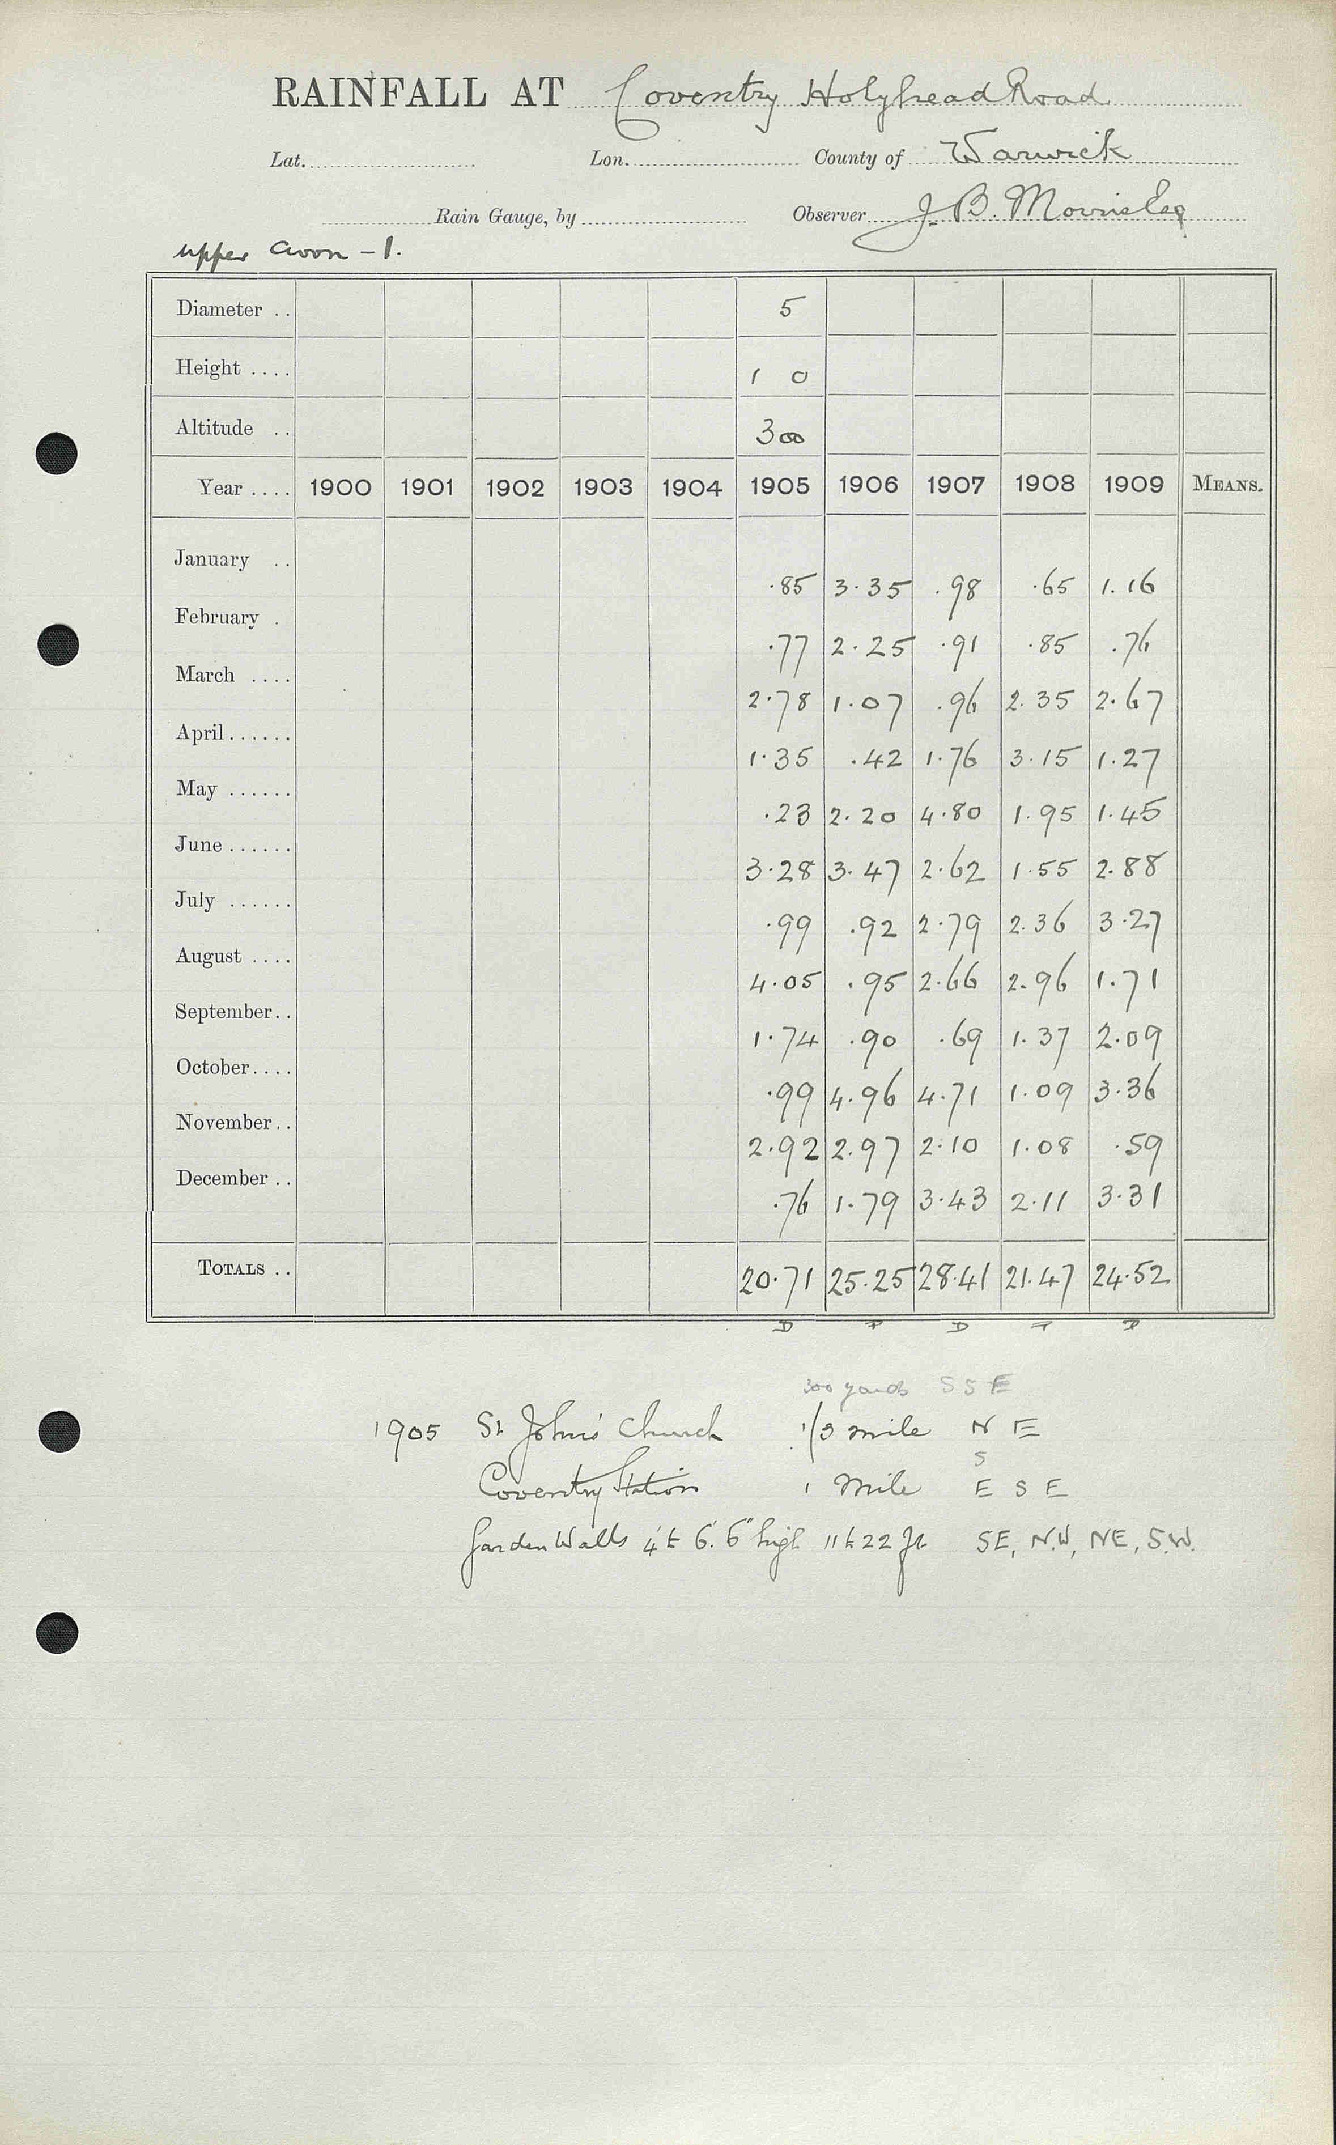 RAINFALL AT Coventry Holyhead Road
Lat. Lon. County of Warwick
Rain Gauge, by Observer J. B. Morris Esq
upper Avon - 1.
Diameter .. 5
Height .... 1 0
Altitude .. 300
Year .... 1900 1901 1902 1903 1904 1905 1906 1907 1908 1909 MEANS.
January .. .85 3.35 .98 .65 1.16
February . .77 2.25 .91 .85 .76
March .... 2.78 1.07 .96 2.35 2.67
April...... 1.35 .42 1.76 3.15 1.27
May ...... .23 2.20 4.80 1.95 1.45
June...... 3.28 3.47 2.62 1.55 2.88
July ...... .99 .92 2.79 2.36 3.27
August .... 4.05 .95 2.66 2.96 1.71
September.. 1.74 .90 .69 1.37 2.09
October.... .99 4.96 4.71 1.09 3.36
November.. 2.92 2.97 2.10 1.08 .59
December .. .76 1.79 3.43 2.11 3.31
TOTALS .. 20.71 25.25 28.41 21.47 24.52
300 yards SSE
1905 St John's Church 1/3 mile N E
S
Coventry Station 1 mile E S E
Garden Walls 4' to 6'.6" high 11 to 22 ft SE, N.W, NE, S.W.